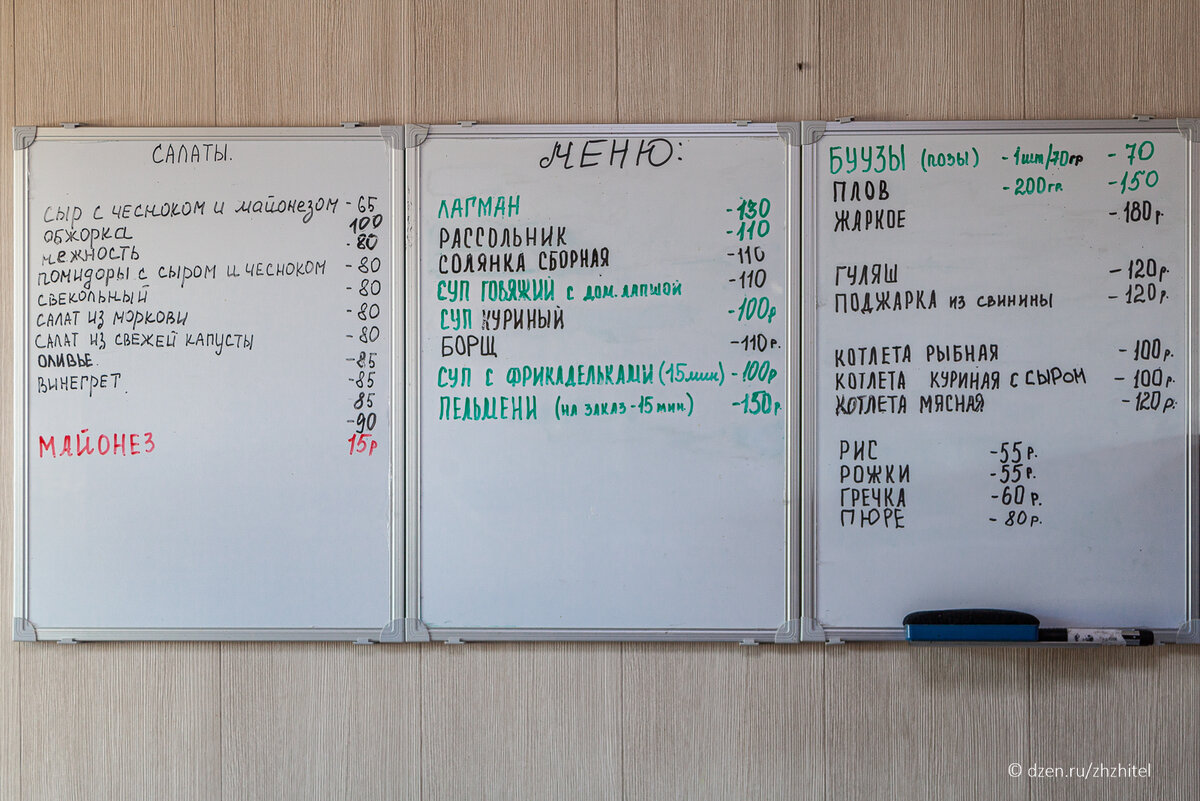 САЛАТЫ.
СЫР С ЧЕСНОКОМ И МАЙОНЕЗОМ - 65
ОБЖОРКА 100
НЕЖНОСТЬ - 80
ПОМИДОРЫ С СЫРОМ И ЧЕСНОКОМ - 80
СВЕКОЛЬНЫЙ - 80
САЛАТ ИЗ МОРКОВИ - 80
САЛАТ ИЗ СВЕЖЕЙ КАПУСТЫ - 80
ОЛИВЬЕ. - 85
ВИНЕГРЕТ. - 85
85
- 90
МАЙОНЕЗ 15Р
МЕНЮ:
ЛАГМАН - 130
РАССОЛЬНИК - 110
СОЛЯНКА СБОРНАЯ - 110
СУП ГОВЯЖИЙ С ДОМ. ЛАПШОЙ - 110
СУП КУРИНЫЙ - 100Р
БОРЩ - 110Р.
СУП С ФРИКАДЕЛЬКАМИ (15 МИН) - 100Р
ПЕЛЬМЕНИ (НА ЗАКАЗ - 15 МИН.) - 150Р.
БУУЗЫ (ПОЗЫ) - 1ШТ/70ГР - 70
ПЛОВ - 200ГР. - 150
ЖАРКОЕ - 180Р.
ГУЛЯШ - 120Р.
ПОДЖАРКА ИЗ СВИНИНЫ - 120Р.
КОТЛЕТА РЫБНАЯ - 100Р.
КОТЛЕТА КУРИНАЯ С СЫРОМ - 100Р.
КОТЛЕТА МЯСНАЯ - 120Р.
РИС - 55Р.
РОЖКИ - 55Р.
ГРЕЧКА - 60Р.
ПЮРЕ - 80Р.
© dzen.ru/zhzhitel